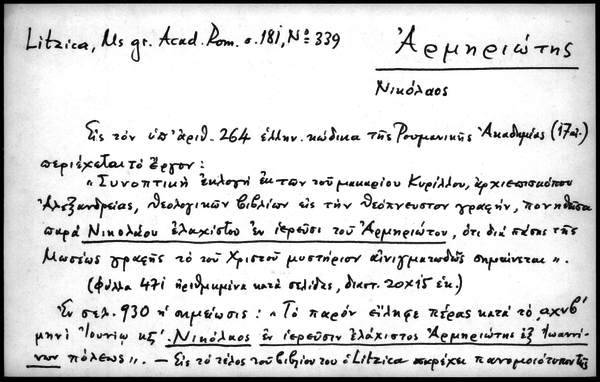 Litzica, Ms gr. Acad. Rom. σ. 181, Nο 339
Ἀρμηριώτης
Νικόλαος
Εἰς τὸν ὑπ' ἀριθ. 264 ἑλλην. κώδικα τῆς Ρουμανικῆς Ἀκαδημίας (17 αἰ.)
περιέχεται τὸ ἔργον:
«Συνοπτικὴ ἐκλογὴ ἐκ τῶν τοῦ μακαρίου Κυρίλλου, ἀρχιεπισκόπου
Ἀλεξανδρείας, θεολογικῶν βιβλίων εἰς τὴν θεόπνευστον γραφήν, πονηθεῖσα
παρὰ Νικολάου ἐλαχίστου ἐν ἱερεῦσι τοῦ Ἀρμηριώτου, ὅτι διὰ πάσης τῆς
Μωσέως γραφῆς τὸ τοῦ Χριστοῦ μυστήριον αἰνιγματωδῶς σημαίνεται».
(φύλλα 471 ἠριθμημένα κατὰ σελίδας, διαστ. 20×15 ἑκ.)
Ἐν σελ. 930 ἡ σημείωσις: «Τὸ παρὸν εἴληφε πέρας κατὰ τὸ ͵αχνβ'
μηνὶ Ἰουνίῳ κξ'. Νικόλαος ἐν ἱερεῦσιν ἐλάχιστος Ἀρμηριώτης ἐξ Ἰωαννί-
νων πόλεως». — Εἰς τὸ τέλος τοῦ βιβλίου του ὁ Litzica παρέχει πανομοιότυπον τῆς